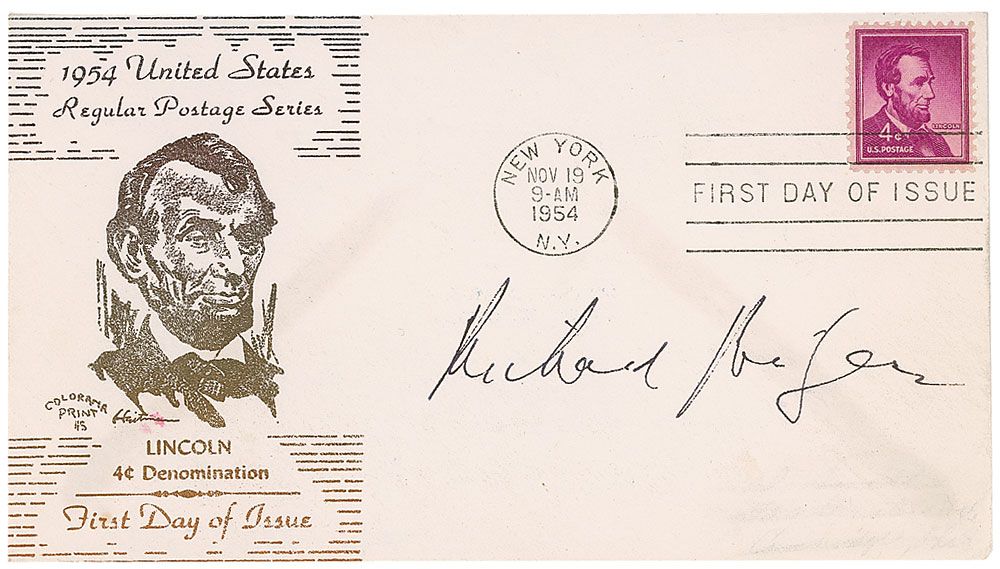 1954 United States
Regular Postage Series
COLORATA
PRINT
#3
LINCOLN
4¢ Denomination
First Day of Issue
NEW YORK
NOV 19
9-AM
1954
N.Y.
LINCOLN
4¢
U.S. POSTAGE
FIRST DAY OF ISSUE
Richard